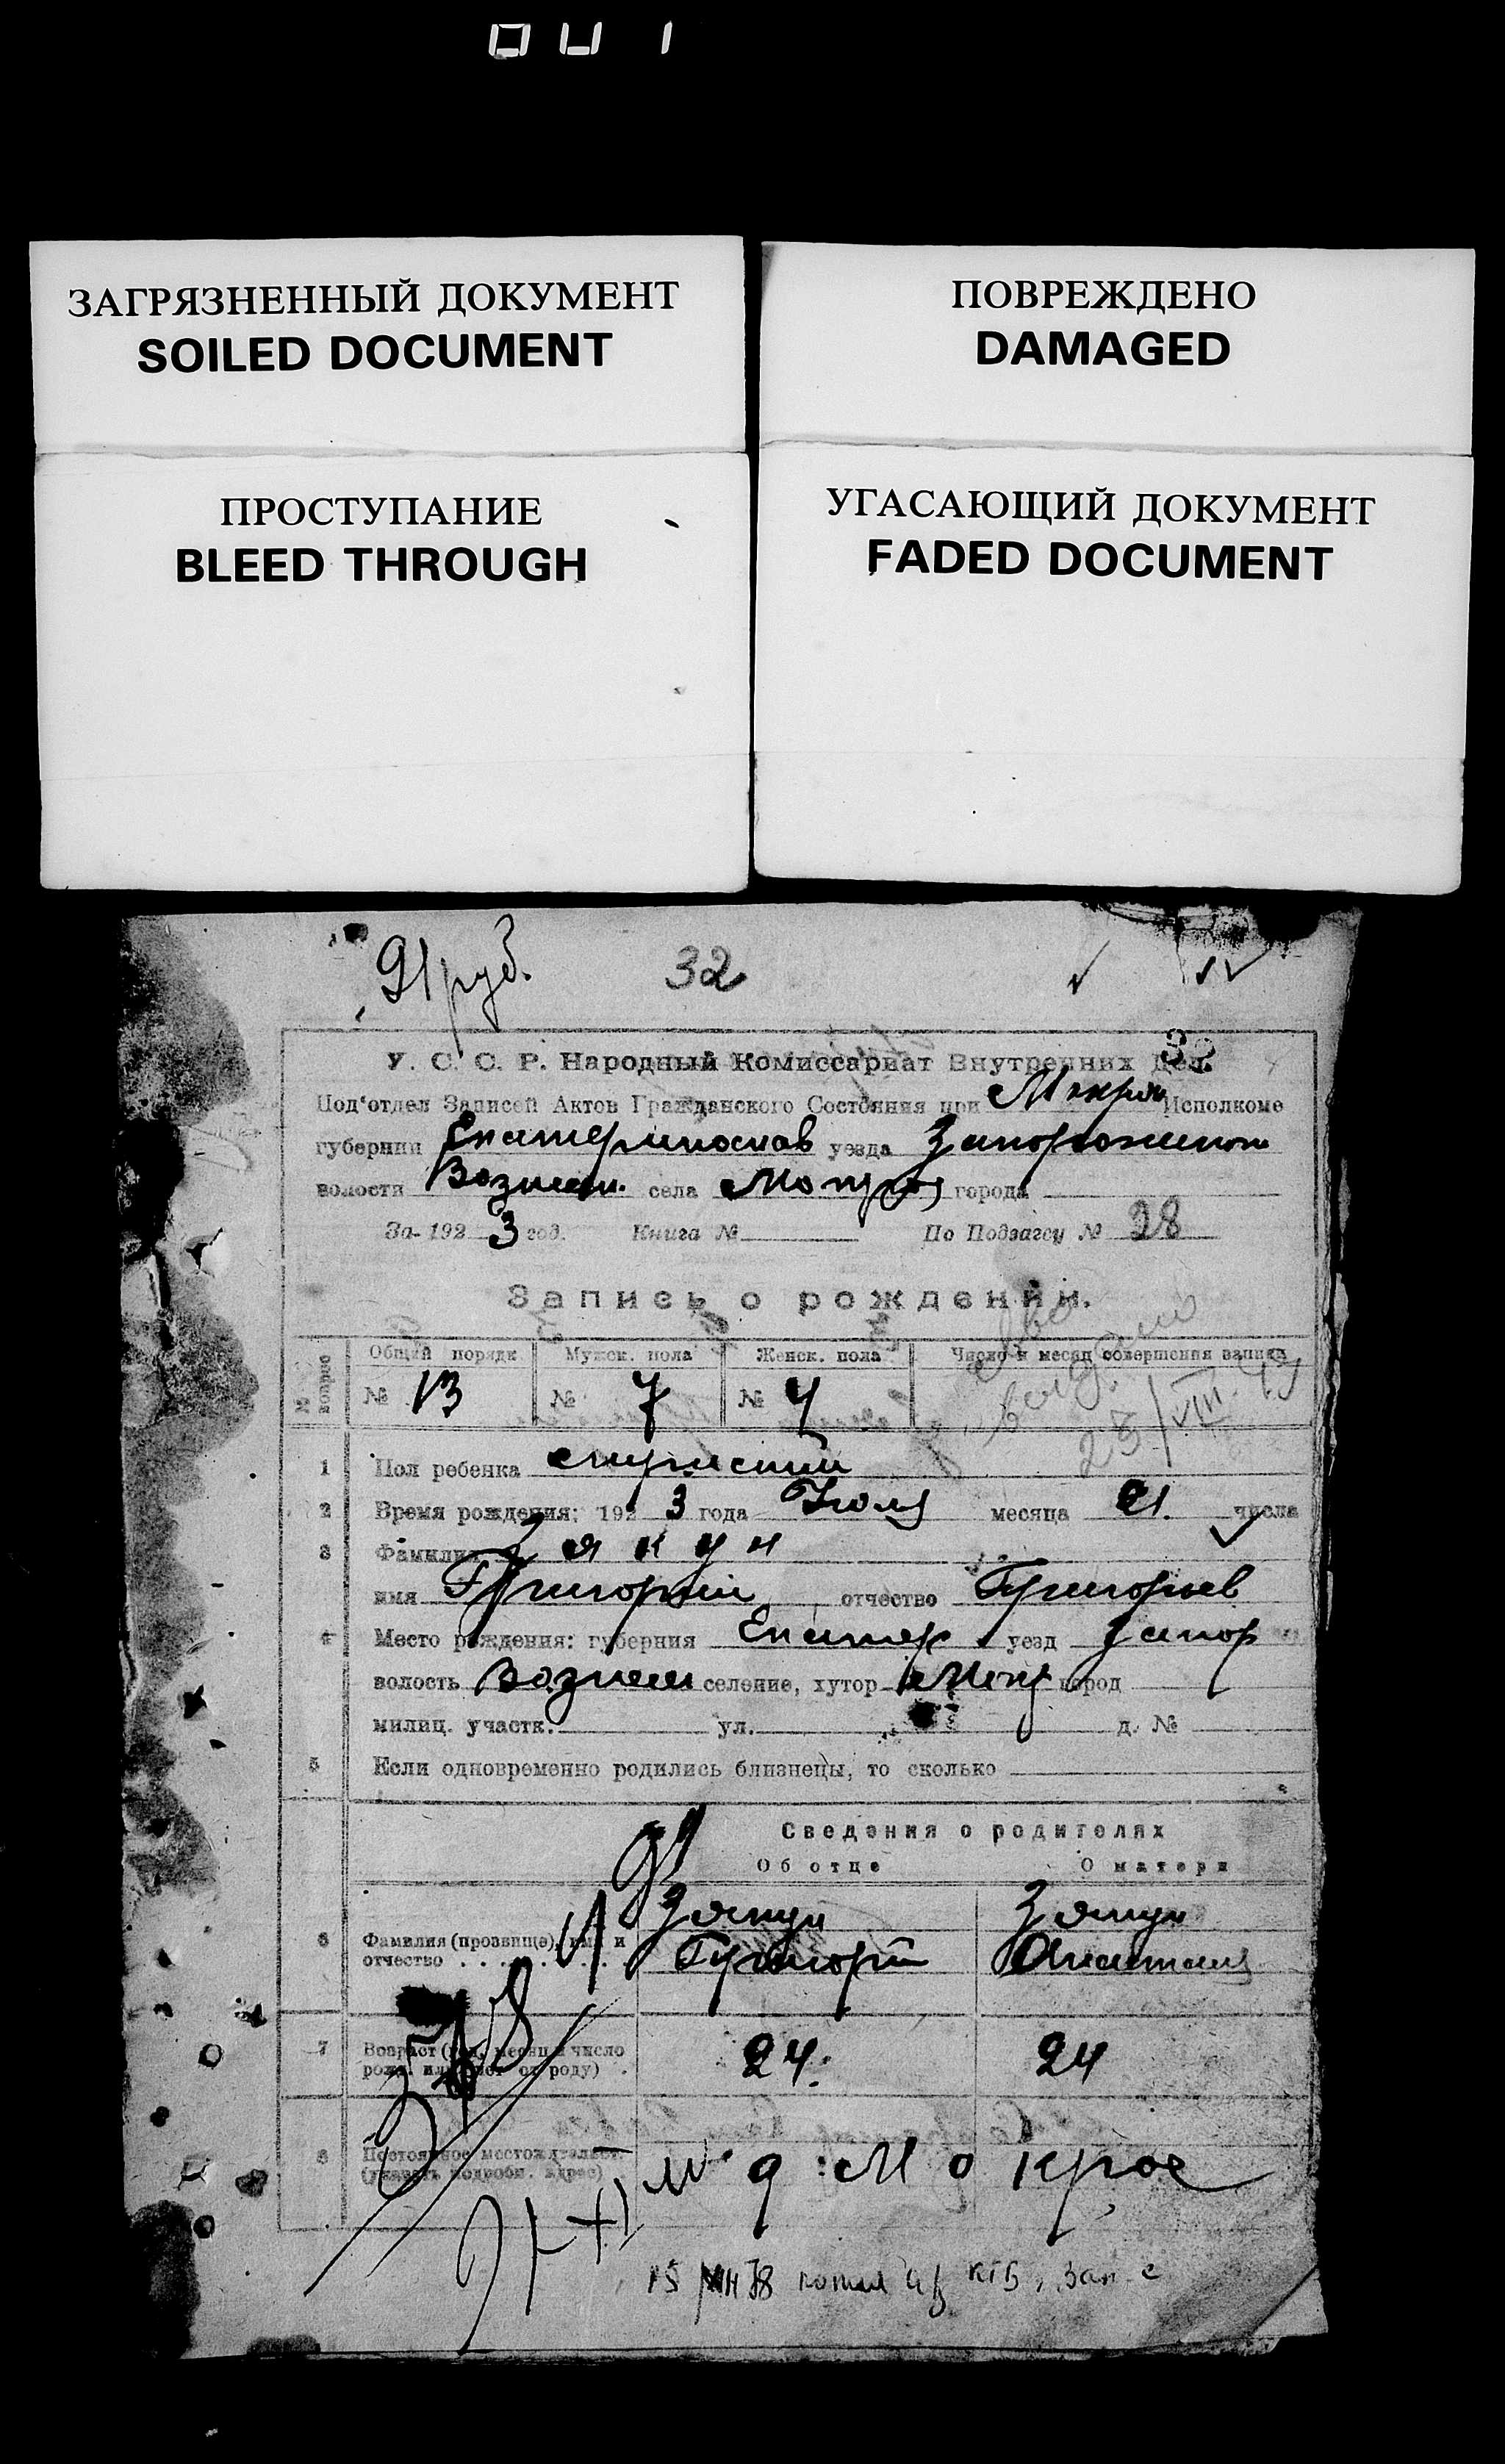 ЗАГРЯЗНЕННЫЙ ДОКУМЕНТ
SOILED DOCUMENT
ПОВРЕЖДЕНО
DAMAGED
ПРОСТУПАНИЕ
BLEED THROUGH
УГАСАЮЩИЙ ДОКУМЕНТ
FADED DOCUMENT
руб. 32
У. С. С. Р. Народный Комиссариат Внутренних Дел.
Под'отдел Записей Актов Гражданского Состояния при Мокрян Исполкоме
губернии Екатеринослав уезда Запорожского
волости Вознесен. села Мокрой города
За 1923 год. Книга № По Подзагсу № 28
Запись о рождении.
№ вопрос Общий порядк Мужск. пола Женск. пола Число и месяц совершения записи
№ 13 № 7 № 4
1 Пол ребенка мужский
2 Время рождения: 1923 года Июля месяца 21. числа
3 Фамилия Зякун
имя Григорий отчество Григорьев
4 Место рождения: губерния Екатер уезд Запор
волость Вознесен селение, хутор Мокр город
милиц. участк. ул. д. №
5 Если одновременно родились близнецы, то сколько
Сведения о родителях
Об отце О матери
Зякун Зякун
6 Фамилия (прозвище), имя и
отчество Григорий Анастасия
7 Возраст (год, месяц и число
рожд. или лет от роду) 24. 24
8 Постоянное местожительст.
(указать подробн. адрес) Мокрое